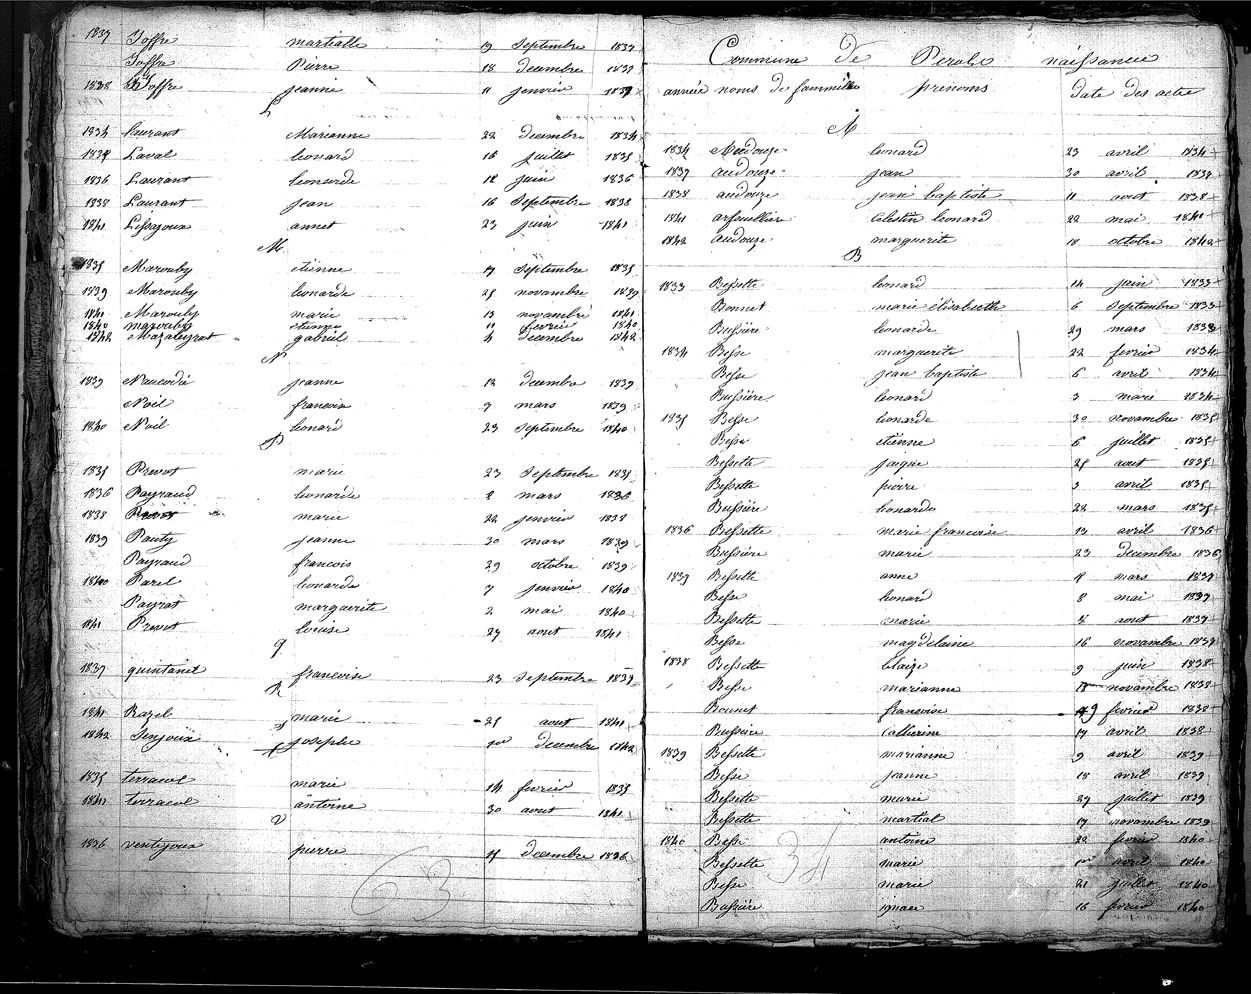 1837 Joffre martialle 19 Septembre 1837
Joffre Pierre 18 decembre 1837
1838 Joffre jeanne 11 janvier 1838
L
1834 Laurant Marianne 22 decembre 1834
Laval leonard 16 juillet 1835
1836 Laurant leonarde 12 juin 1836
1838 Laurant jean 16 Septembre 1838
1841 Lissajoux annet 23 juin 1841
M
1835 Marouby etienne 17 Septembre 1835
1839 Marouby leonarde 25 novembre 1839
1841 Marouby marie 13 novembre 1841
1840 marouby etienne 11 fevrier 1840
1842 Mazaleyrat gabriel 4 decembre 1842
N
1839 jeanne 12 decembre 1839
Noël francoise 9 mars 1839
1840 Noël leonard 23 Septembre 1840
P
1835 Prevot marie 23 Septembre 1835
1836 Payraud leonarde 2 mars 1836
1838 Prevot marie 22 janvier 1838
1839 Pauty jeanne 30 mars 1839
Payraud francois 29 octobre 1839
1840 Parel leonarde 7 janvier 1840
Payrat marguerite 2 mai 1840
1841 Prevot louise 27 aout 1841
q
1837 quintanet francoise 23 Septembre 1837
R
1841 Razel marie 25 aout 1841
S
1842 Senjoux josephe 1er decembre 1842
t
1835 terracol marie 14 fevrier 1835
1841 terracol antoine 30 aout 1841
V
1836 ventejoux pierre 15 decembre 1836
63
Commune De Perols naissance
année noms de fammille prenoms date des actes
A
1834 Audouze leonard 23 avril 1834
1837 audouze jean 30 avril 1837
1838 audouze jean baptiste 11 aout 1838
1841 arfouillier celestin leonard 22 mai 1841
1842 audouze marguerite 18 octobre 1842
B
1833 Bessette leonard 14 juin 1833
Bonnet marie elisabeth 6 Septembre 1833
Bussière leonarde 29 mars 1833
1834 Besse marguerite 22 fevrier 1834
Besse jean baptiste 6 avril 1834
Bussière leonard 3 mars 1834
1835 Besse leonarde 30 novembre 1835
Besse etiënne 6 juillet 1835
Bessette 25 aout 1835
Bessette pierre 3 avril 1835
Bussière leonarde 22 mars 1835
1836 Bessette marie francoise 13 avril 1836
Bussière marie 23 decembre 1836
1837 Bessette anne 8 mars 1837
Besse leonard 8 mai 1837
Bessette marie 8 aout 1837
Besse magdelaine 16 novembre 1837
1838 Bessette blaize 9 juin 1838
Besse marianne 18 novembre 1838
Bounet francoise 19 fevrier 1838
Bussière catherine 17 avril 1838
1839 Bessette marianne 9 avril 1839
Besse jeanne 18 avril 1839
Bessette marie 27 juillet 1839
Bessette martial 17 novembre 1839
1840 Besse antoine 22 fevrier 1840
Bessette marie 1er avril 1840
Besse marie 21 juillet 1840
Bussière ignace 16 fevrier 1840
34